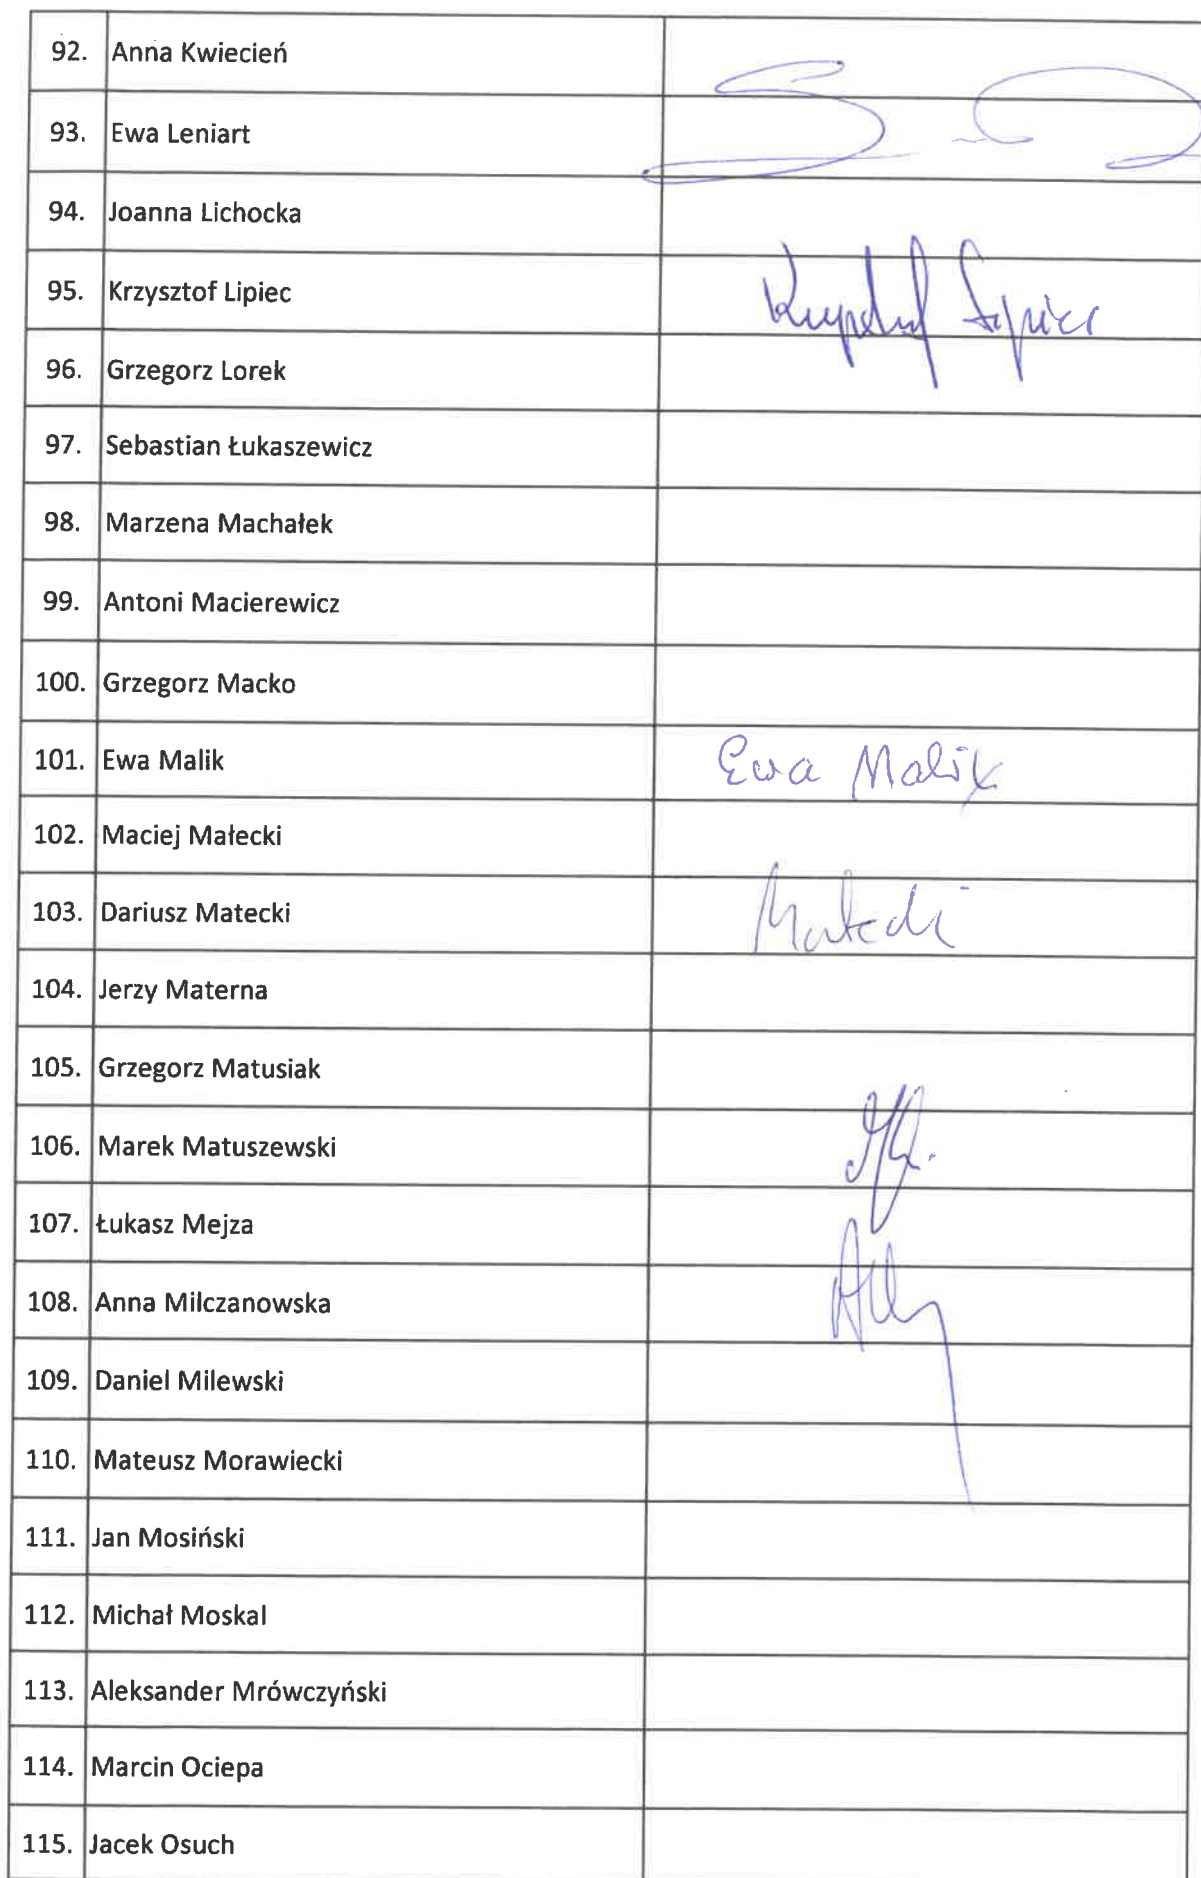 92. Anna Kwiecień
93. Ewa Leniart
94. Joanna Lichocka
95. Krzysztof Lipiec Krzysztof Lipiec
96. Grzegorz Lorek
97. Sebastian Łukaszewicz
98. Marzena Machałek
99. Antoni Macierewicz
100. Grzegorz Macko
101. Ewa Malik Ewa Malik
102. Maciej Małecki
103. Dariusz Matecki Matecki
104. Jerzy Materna
105. Grzegorz Matusiak
106. Marek Matuszewski
107. Łukasz Mejza
108. Anna Milczanowska
109. Daniel Milewski
110. Mateusz Morawiecki
111. Jan Mosiński
112. Michał Moskal
113. Aleksander Mrówczyński
114. Marcin Ociepa
115. Jacek Osuch